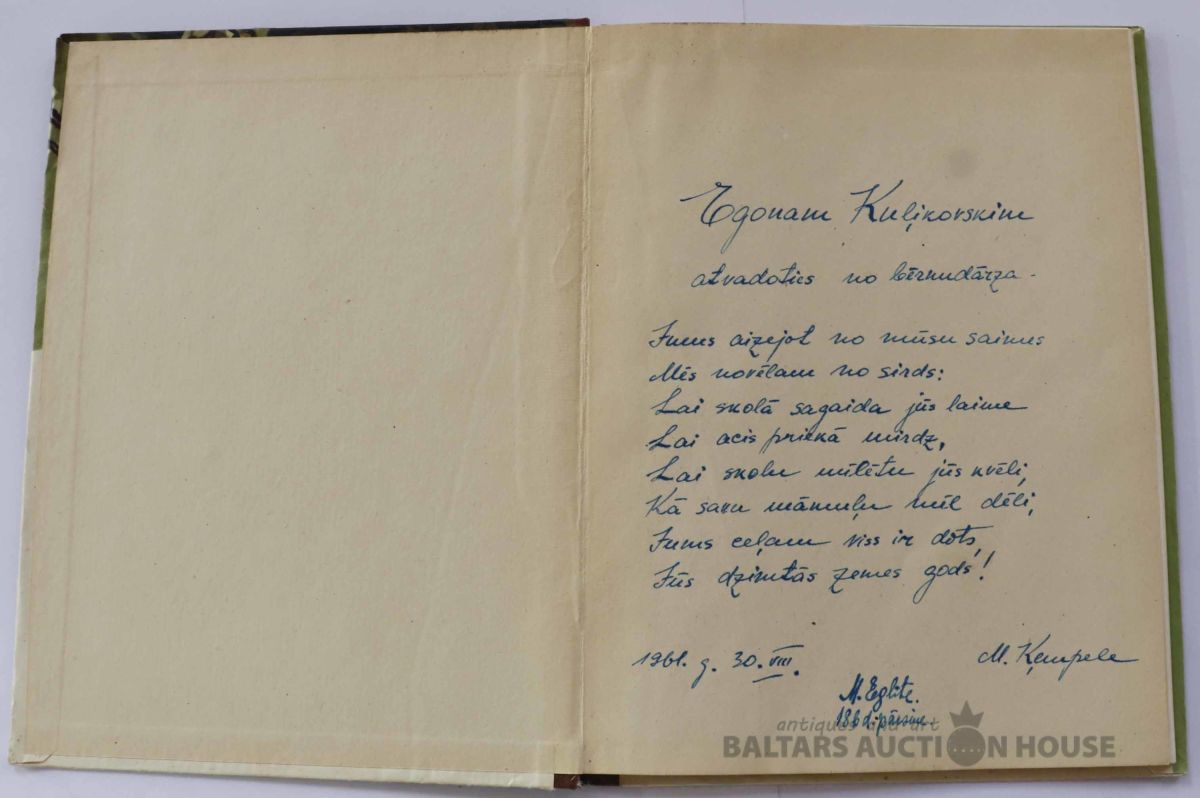 Egonam Kuļikovskim
atvadoties no bērnudārza -
Jums aizejot no mūsu saimes
Mēs novēlam no sirds:
Lai skolā sagaida jūs laime
Lai acis priekā mirdz,
Lai skolu mīlētu jūs kvēli,
Kā savu māmuļu mīl dēli,
Jums ceļam viss ir dots,
Jūs dzimtās zemes gods!
1961. g. 30. VIII. M. Ķempele
M. Eglīte.
antiques and art
BALTARS AUCTION HOUSE